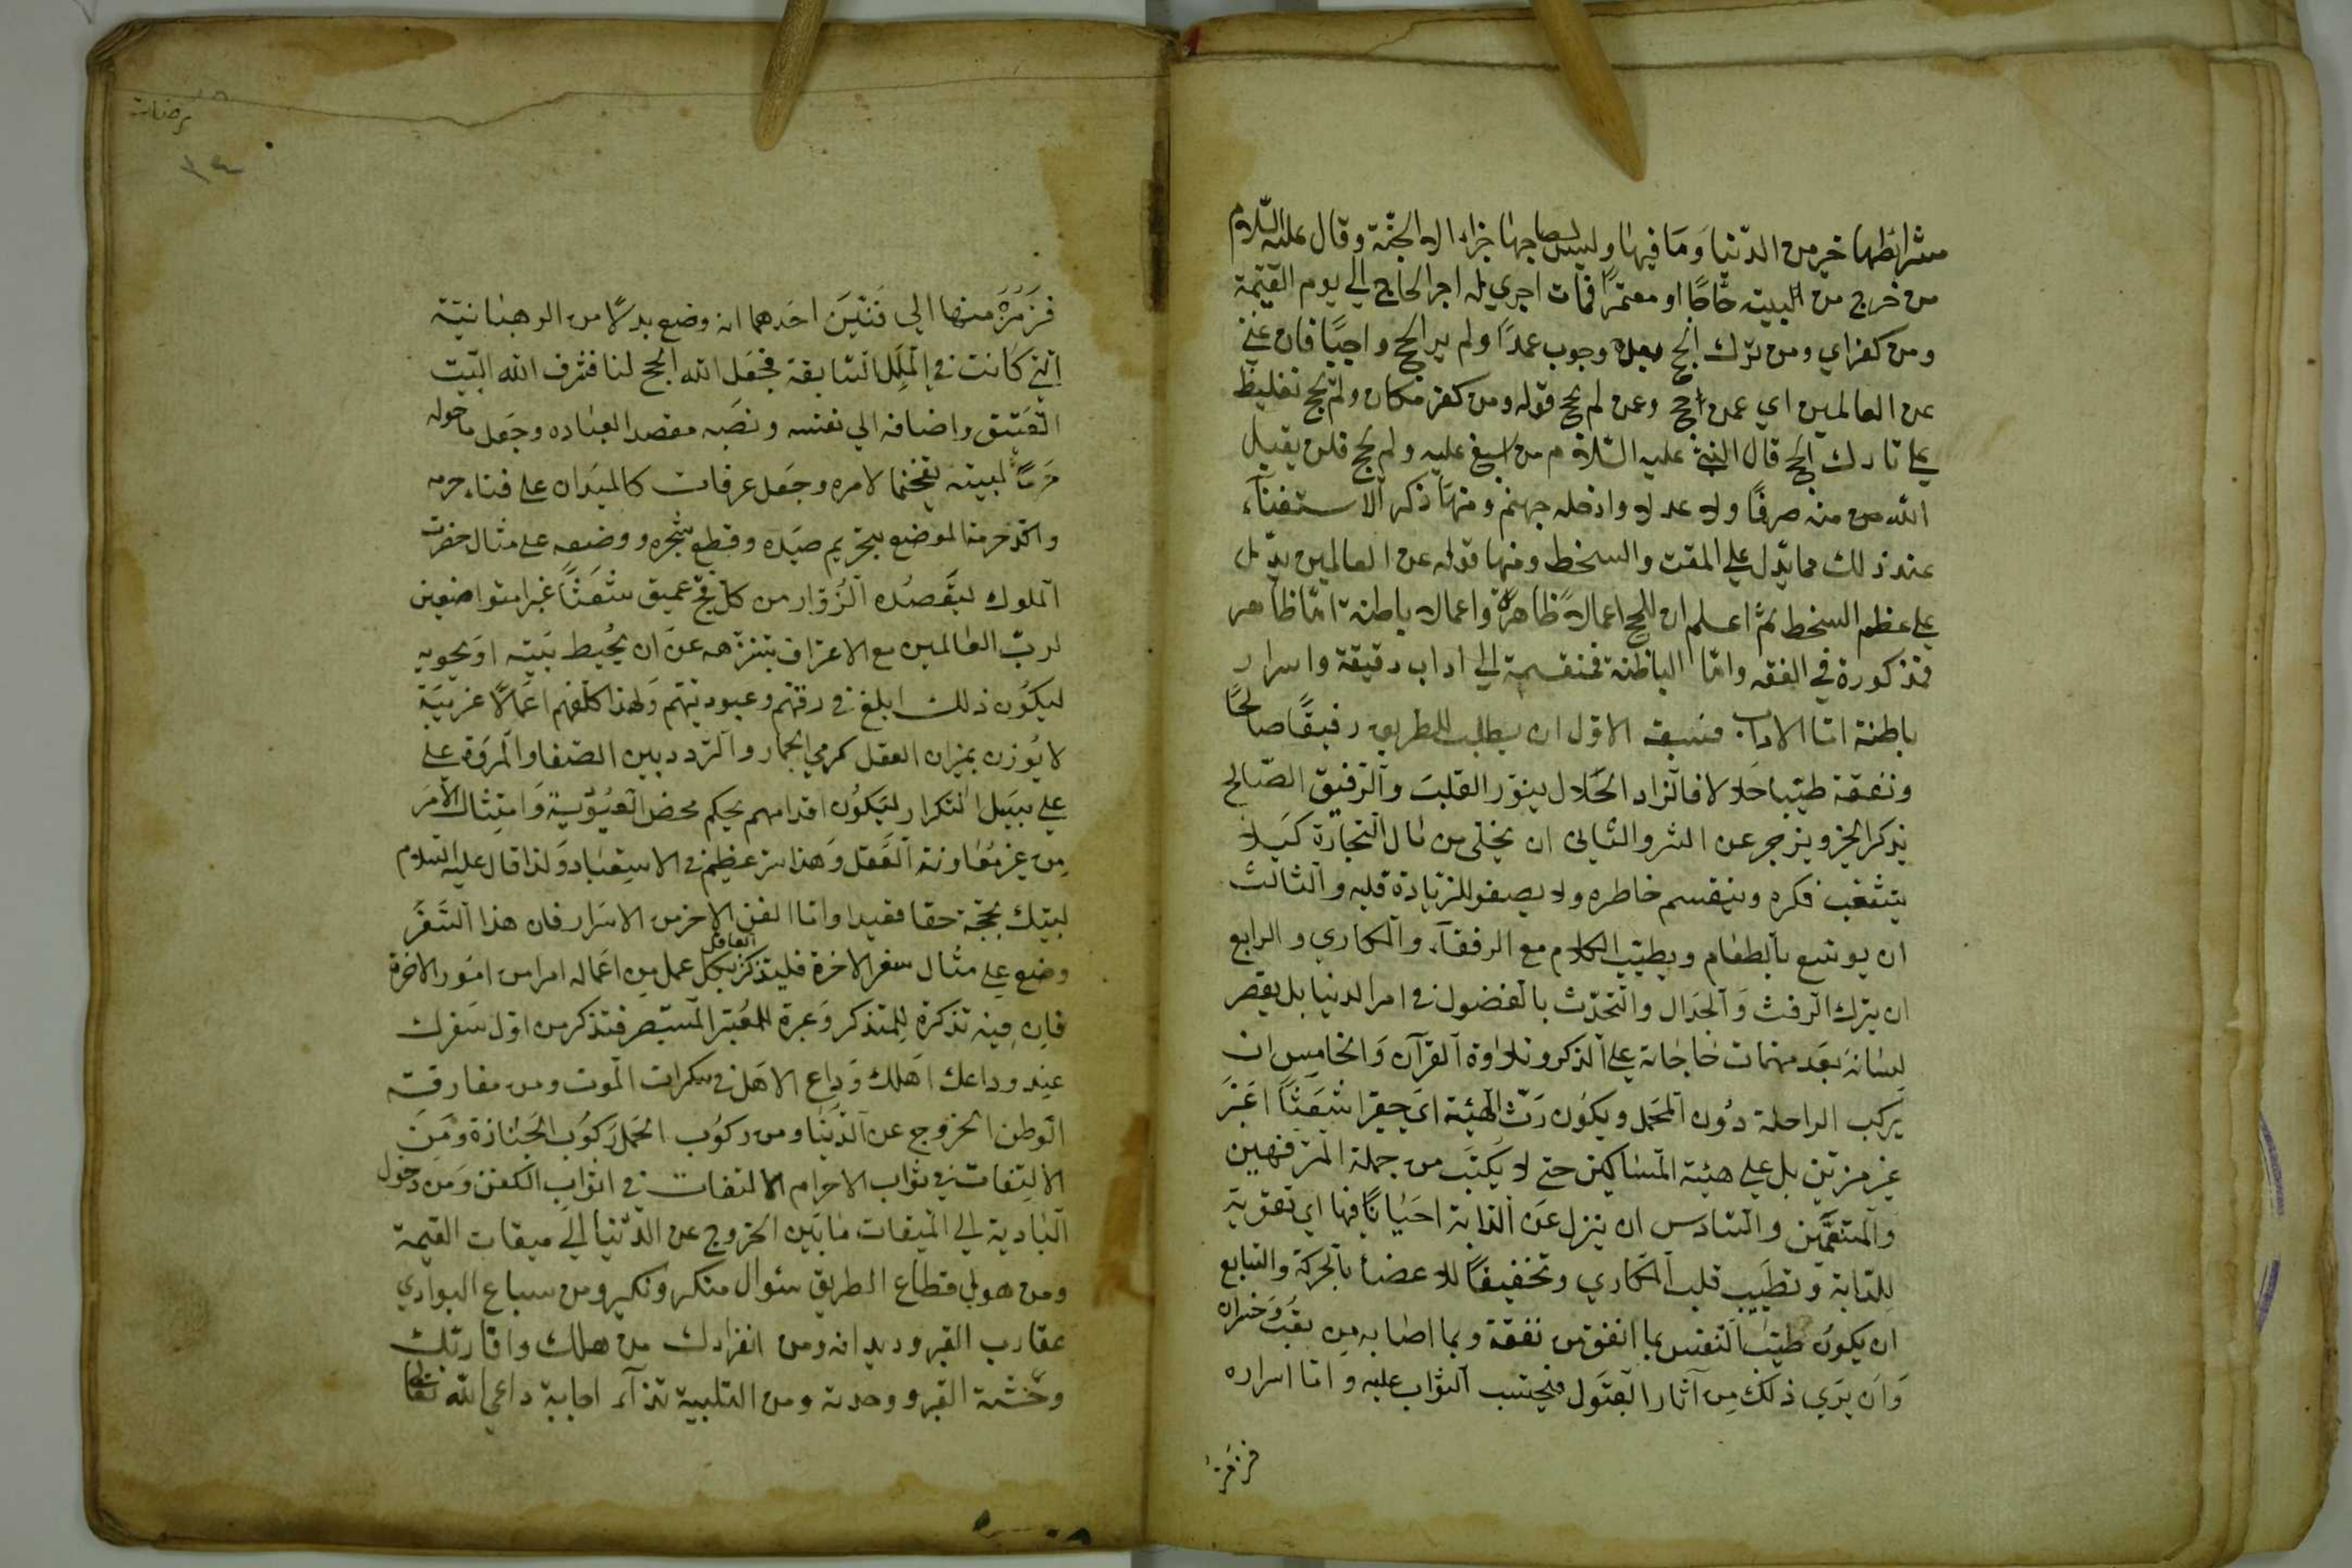 شرائطها خير من الدّنيا وَمَا فيها وليس لصاحبها جزاء الا الجنّة وقال عليه السّلام
من خرج من البيته حَاجّا او معتمرًا فمات اجري له اجر الحاج الي يوم القيٰمة
ومن كفر اي ومن ترك الحج بعد وجوب عمدًا ولم ير الحج واجبًا فان غني
عن العالمين اي عمن حج وعن لم يحج قوله ومن كفر مكان ولم يحج تغليظ
علي تارك الحج قال النبي عليه السّلام من اسبغ عليه ولم يحج فلن يقبل
الله من منه صرفًا ولا عدلا وادخله جهنم ومنها ذكر الاستغنآء
عند ذلك مما يدّل علي المقت والسخط ومنها قوله عن العالمين يدّل
علي عظم السخط ثم اعلم ان للحج اعمالاً ظاهرة واعمالا باطنة امّا ظاهر
فمذكورة في الفقه وامّا الباطنة فمنقسمة الي اداب دقيقة واسرار
باطنة امّا الاداب فسبعة الاوّل ان يطلب للطريق رفيقًا صالحًا
ونفقة طيّبا حَلالا فالزاد الحَلال ينوّر القلبَ والرّفيق الصّالح
يذكر الخير ويزجر عن الشر والثاني ان يخلى من مال التجارة كيلا
يتشعّب فكره وينقسم خاطره ولا يصفو للزيادة قلبه والثالث
ان يوسّع بالطعام ويطيّب الكلام مع الرفقآء والمكاري والرابع
ان يترك الرفث وَالجَدَال والتحدّث بالفضول في امر الدنيا بل يقصر
لسَانهَ بعَد مهمات حَاجَاته علي الذكر وتلاوة القرآن وَالخامس ان
يَركب الراحلة دوُن المحَمل ويكوُن رَثّ الهيئة ايَ حقيرا شَعثًا اغبَرَ
غير مزيّن بل علي هيئة المسَاكين حتي لا يكتبَ من جملة المترفهين
والمتنعّمين والسّادس ان ينزل عَن الدابة احَيَانًا فيها اي تقوية
للدّابة وتطيَيب قلب المكاري وتخفيفًا للاعضاء بالحركة والسّابع
ان يكوُن طيّب النفس بما انفق من نفقة وبما اصَابه من تعَب وَخسران
وَان يرَي ذلك من آثار القبَول فيحتسب الثوّاب عليه وامّا اسراره
فزمزة
رضات
٣٤
فزَمزَة منها الي فَنّيَن احَدهما انه وضع بدلًا من الرهبَانيّة
الّتي كانت في المِلَل السّابقة فجعَل الله الحج لنا فشرف الله البيَت
العَتيق واضافه الي نفسه ونصَبه مقصد العبَاده وجَعل ما حوله
حَرمًا لبيته تفخيمًا لامره وجَعل عرفات كالميدَان علي فنَاء حرمه
واكّد حرمة الموضع بتحريم صيَده وقطع شجره ووضعه علي مثال حضرت
الملوك ليقصُده الزُوّار من كلّ فجّ عميق شعثًا غبرا متواضعين
لربّ العالمين مع الاعتراف بتنزّهه عَن ان يُحيط بيَته اوَ يحويه
ليكوُن ذلك ابلغ في رقّهم وعبوديّتهم وَلهذا كلّفهم اعمالًا غريبَة
لا يُوزن بميزان العقل كرمي الجمار والتردد بين الصّفا والمرَوة علي
علي سبيَل التكرار ليَكوُن اقدامهم بحكم محض العبُوديّة وَامتثال الامَر
من غير مُعَاونة العَقل وَهذا سرّ عظيم في الاستعبَاد وَلذا قال عليه السلام
لبيّك بحَجّة حقا فقيدا وامّا الفن الاخر من الاسَرار فان هذا السَفَر
وضع علي مثُال سفر الاخرة فليتذكر العاقل بكل عمل من اعَماله امرا من امَور الاخرة
فان فيه تذكرة للمتذكر وَعبرة للمُعتبر المستبصر فتذكر من اوّل سَفرك
عند وداعك اهَلك وَداع الاهَل في سكرات الموت ومن مفارقة
الوطن الخروج عن الدّنيَا ومن ركوُب الجَمل ركوُب الجَنازة وَمَن
الالتفات في ثوَاب الاحرام الالتفات في اثوَاب الكفن وَمن دخول
البَادية الي الميقات مَا بيَن الخروج عن الدّنيا الي ميقات القيٰمة
ومن هولي قطاع الطريق سئوال منكر ونكير ومن سباع البوادي
عقارب القبر وديدانه ومن انفرادك من هلك واقاربك
وحَشة القبر ووحدته ومن التلبية ندآء اجابة داعي الله تعالي